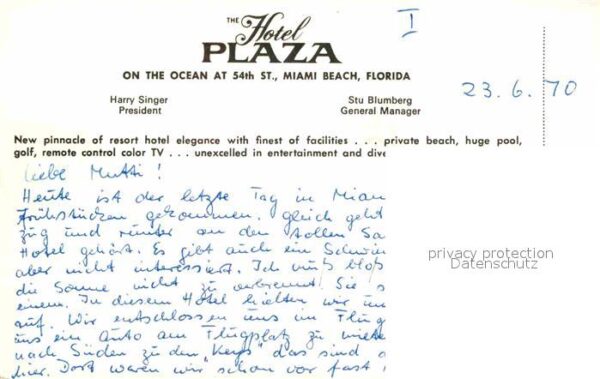 THE Hotel
PLAZA
I
ON THE OCEAN AT 54th ST., MIAMI BEACH, FLORIDA
23. 6. 70
Harry Singer
President
Stu Blumberg
General Manager
New pinnacle of resort hotel elegance with finest of facilities . . . private beach, huge pool,
golf, remote control color TV . . . unexcelled in entertainment and dive
Liebe Mutti !
Heute ist der letzte Tag in Miam
Frühstücken gekommen, gleich geht
zug und runter an den tollen Sa
Hotel gehört. Es gibt auch ein Schwim
aber nicht interessiert. Ich muß bloß
die Sonne nicht zu verbrennt! Sie s
einem. In diesem Hotel hielten wir un
auf. Wir entschlossen uns im Flug
uns ein Auto am Flugplatz zu miete
nach Süden zu den "Keys" das sind
hier. Dort waren wir schon vor fast
privacy protection
Datenschutz